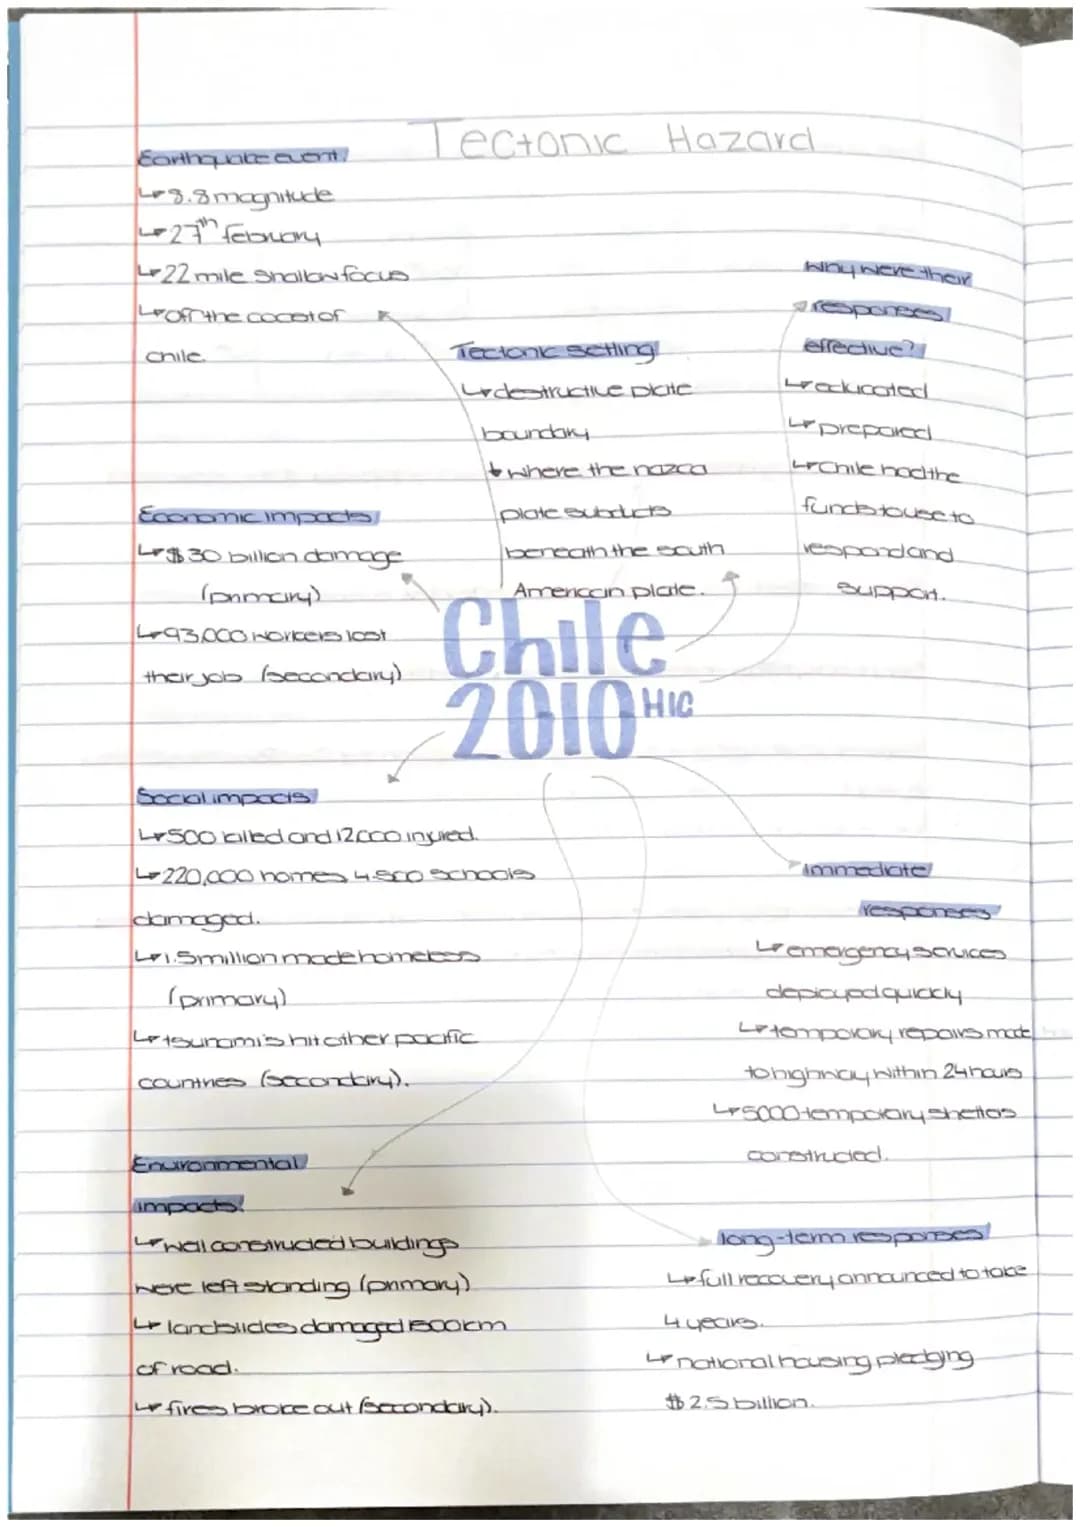 Tectonic Hazard
Earthquake event/
↳8.8 magnitude
↳27th february
↳22 mile shallow focus
↳off the coast of
chile.
Tectonic setting/
↳destructive plate
boundary
↳where the nazca
plate subducts
beneath the south
American plate.
Why were their
responses
effective?
↳educated
↳prepared
↳Chile had the
funds to use to
respond and
support.
Economic impacts/
↳$30 billion damage
(primary)
↳93,000 workers lost
their job (secondary)
Chile
2010 HIC
Social impacts/
↳500 killed and 12000 injured.
↳220,000 homes 4.500 schools
damaged.
↳1.5million made homeless
(primary)
↳tsunami's hit other pacific
countries (secondary).
Environmental
impacts/
↳well constructed buildings
were left standing (primary)
↳landslides damaged 1500km
of road.
↳fires broke out (secondary).
immediate
responses
↳emergency services
deployed quickly
↳temporary repairs made
to highway within 24 hours
↳5000 temporary shelters
constructed.
long-term responses/
↳full recovery announced to take
4 years.
↳national housing pledging
$2.5 billion.